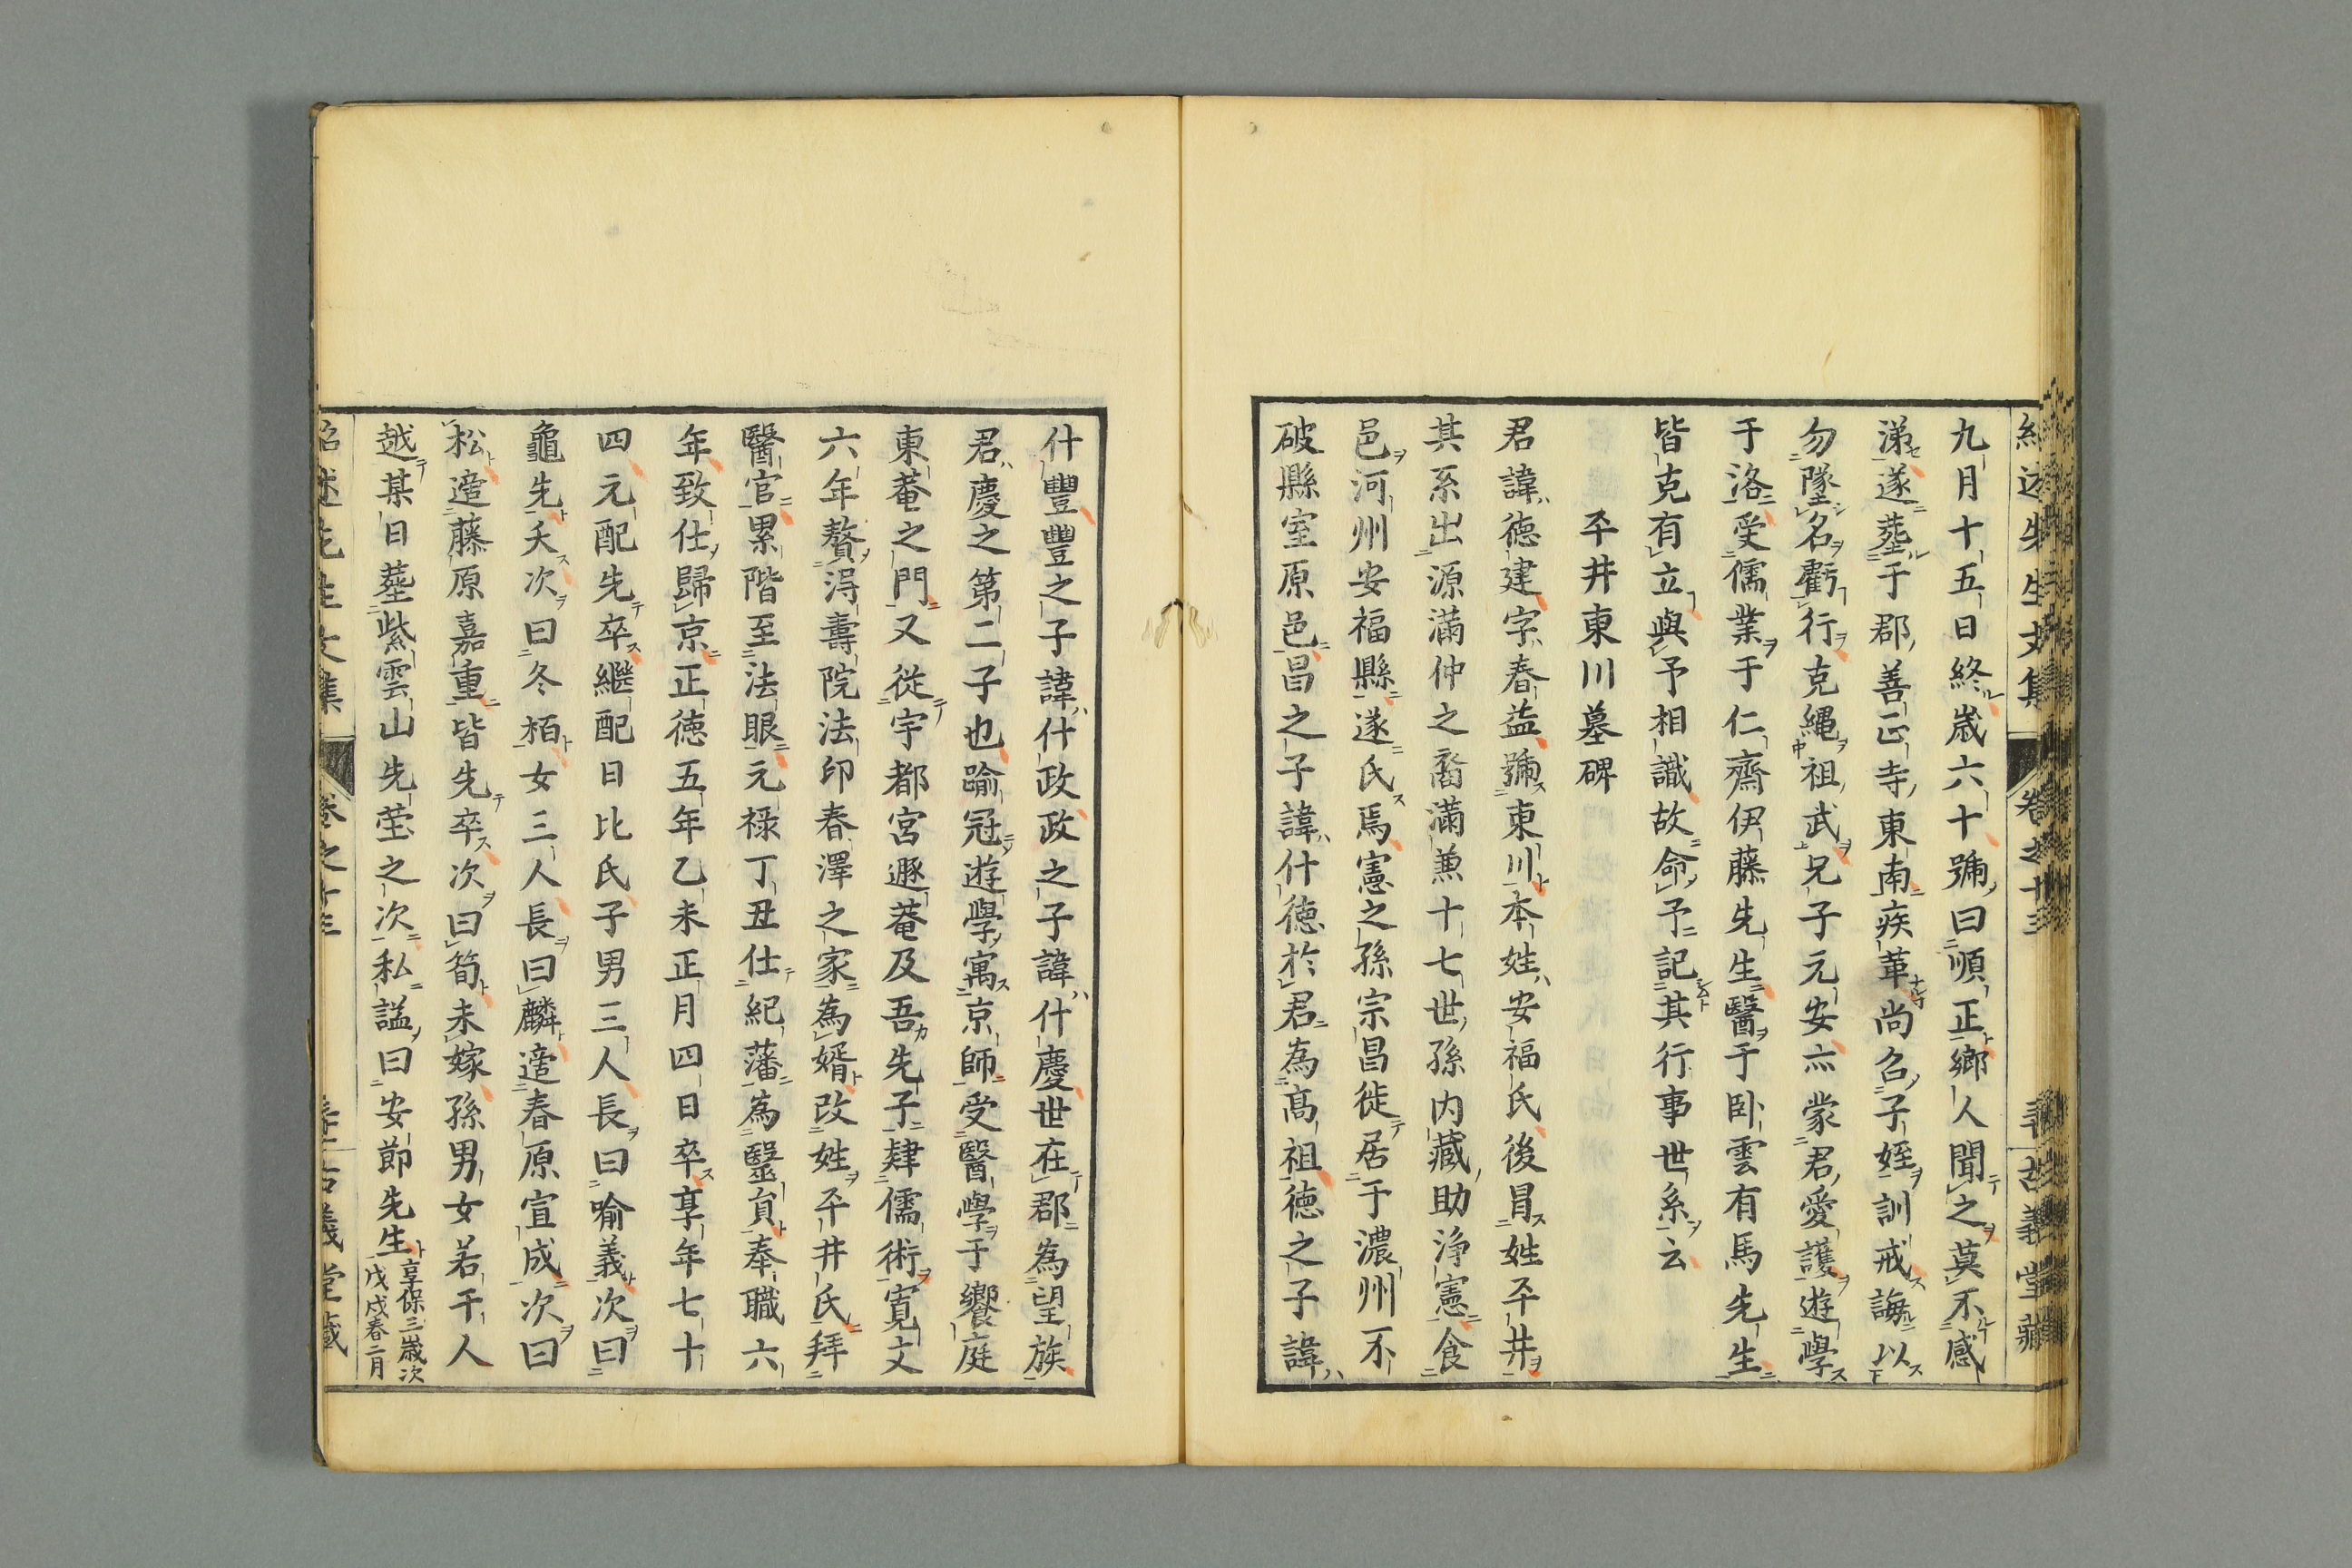 九月十五日終歳六十號曰順正鄉人聞之莫不感
涕遂葬于郡善正寺東南疾革尚召子姪訓戒誨以
勿墜名虧行克繩祖武兄子元安亦蒙君愛護遊學
于洛受儒業于仁齋伊藤先生醫于卧雲有馬先生
皆克有立與予相識故命予記其行事世系云
平井東川墓碑
君諱德建字春益號東川本姓安福氏後冒姓平井
其系出源滿仲之裔滿兼十七世孫内藏助淨憲食
邑河州安福縣遂氏焉憲之孫宗昌徙居于濃州不
破縣室原邑昌之子諱什德於君為高祖德之子諱
什豐豐之子諱什政政之子諱什慶世在郡為望族
君慶之第二子也踰冠遊學寓京師受醫學于饗庭
東菴之門又從宇都宮遯菴及吾先子肄儒術寬文
六年贅淂壽院法印春澤之家為婿改姓平井氏拜
醫官累階至法眼元祿丁丑仕紀藩為毉貟奉職六
年致仕歸京正德五年乙未正月四日卒享年七十
四元配先卒繼配日比氏子男三人長曰喻義次曰
龜先夭次曰冬栢女三人長曰麟適春原宣成次曰
松適藤原嘉重皆先卒次曰筍未嫁孫男女若干人
越某日葬紫雲山先塋之次私謚曰安節先生
享保三歳次
戊戌春二月